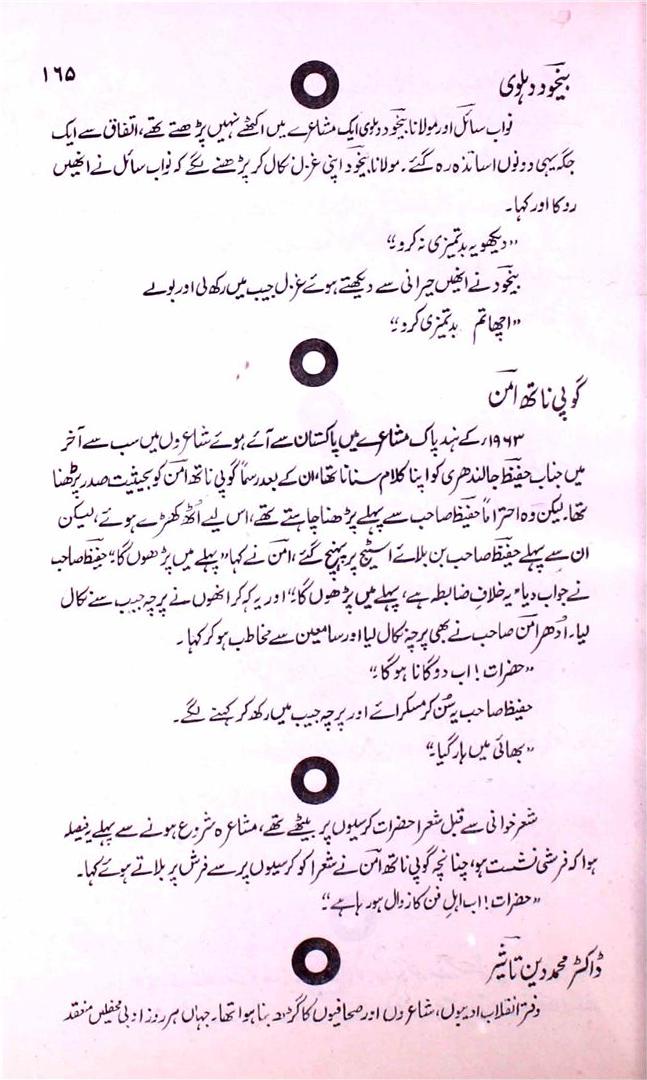 ۱۶۵
بیخود دہلوی
نواب سائل اور مولانا بیخود دہلوی ایک مشاعرے میں اکٹھے نہیں پڑھتے تھے، اتفاق سے ایک
جگہ یہی دونوں اساتذہ رہ گئے۔ مولانا بیخود اپنی غزل نکال کر پڑھنے لگے کہ نواب سائل نے انھیں
روکا اور کہا۔
”دیکھو یہ بدتمیزی نہ کرو۔“
بیخود نے انھیں حیرانی سے دیکھتے ہوئے غزل جیب میں رکھ لی اور بولے
”اچھا تم بدتمیزی کرو۔“
گوپی ناتھ امن
۱۹۶۳ء کے ہند پاک مشاعرے میں پاکستان سے آئے ہوئے شاعروں میں سب سے آخر
میں جناب حفیظ جالندھری کو اپنا کلام سنانا تھا، ان کے بعد رسماً گوپی ناتھ امن کو بحیثیت صدر پڑھنا
تھا۔ لیکن وہ احتراماً حفیظ صاحب سے پہلے پڑھنا چاہتے تھے، اس لیے اُٹھ کھڑے ہوئے، لیکن
ان سے پہلے حفیظ صاحب بن بلائے اسٹیج پر پہنچ گئے، امن نے کہا ”پہلے میں پڑھوں گا۔“ حفیظ صاحب
نے جواب دیا، ”یہ خلافِ ضابطہ ہے، پہلے میں پڑھوں گا۔“ اور یہ کہہ کر انھوں نے پرچہ جیب سے نکال
لیا۔ اُدھر امن صاحب نے بھی پرچہ نکال لیا اور سامعین سے مخاطب ہو کر کہا۔
”حضرات! اب دوگانا ہوگا۔“
حفیظ صاحب یہ سُن کر مسکرائے اور پرچہ جیب میں رکھ کر کہنے لگے۔
”بھائی میں ہار گیا۔“
شعر خوانی سے قبل شعرا حضرات کرسیوں پر بیٹھے تھے، مشاعرہ شروع ہونے سے پہلے یہ فیصلہ
ہوا کہ فرشی نشست ہو، چنانچہ گوپی ناتھ امن نے شعرا کو کرسیوں پر سے فرش پر بلاتے ہوئے کہا۔
”حضرات! اب اہلِ فن کا زوال ہو رہا ہے“۔
ڈاکٹر محمد دین تاثیر
دفتر انقلاب ادیبوں، شاعروں اور صحافیوں کا گڑھ بنا ہوا تھا۔ جہاں ہر روز ادبی محفلیں منعقد